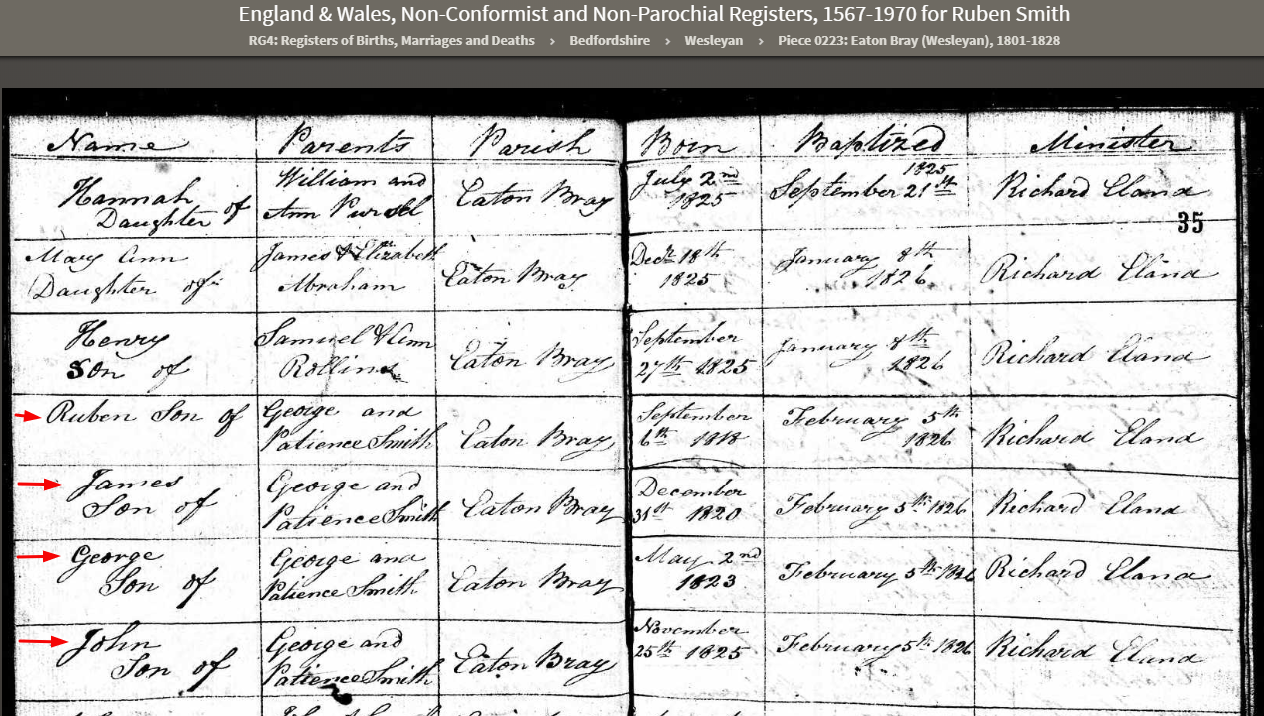 England & Wales, Non-Conformist and Non-Parochial Registers, 1567-1970 for Ruben Smith
RG4: Registers of Births, Marriages and Deaths › Bedfordshire › Wesleyan › Piece 0223: Eaton Bray (Wesleyan), 1801-1828
Name Parents Parish Born Baptized Minister
Hannah
Daughter of
William and
Ann Pursel
Eaton Bray
July 2nd
1825
1825
September 21st
Richard Eland
35
Mary Ann
Daughter of
James & Elizabeth
Abraham
Eaton Bray
Decr 18th
1825
January 8th
1826
Richard Eland
Henry
Son of
Samuel & Ann
Rollins
Eaton Bray
September
27th 1825
January 8th
1826
Richard Eland
Ruben Son of
George and
Patience Smith
Eaton Bray
September
6th 1818
February 5th
1826
Richard Eland
James
Son of
George and
Patience Smith
Eaton Bray
December
31st 1820
February 5th 1826
Richard Eland
George
Son of
George and
Patience Smith
Eaton Bray
May 2nd
1823
February 5th 1826
Richard Eland
John
Son of
George and
Patience Smith
Eaton Bray
November
25th 1825
February 5th 1826
Richard Eland